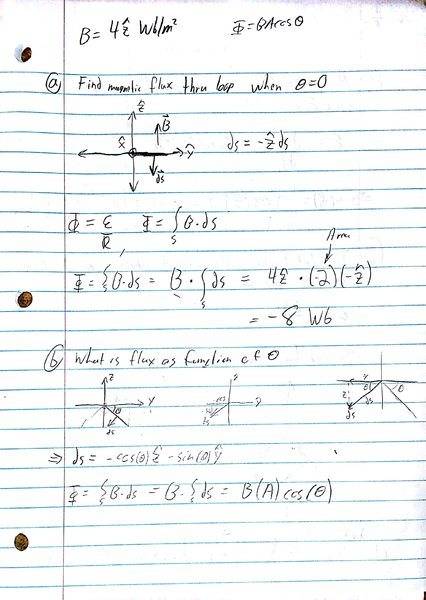 B = 4ẑ Wb/m² Φ = BA cos θ
(a) Find magnetic flux thru loop when θ=0
ẑ
B⃗
x̂
ŷ
ds⃗
ds = -ẑ ds
Φ = ε/R , Φ = ∫s B·ds
Area
Φ = ∫s B·ds = B · ∫s ds = 4ẑ · (2)(-ẑ)
= -8 Wb
(b) What is flux as function of θ
z
y
θ
ds
z
y
y
θ
θ
z
ds
ds
⇒ ds = -cos(θ)ẑ -sin(θ)ŷ
Φ = ∫s B·ds = B·∫s ds = B(A)cos(θ)